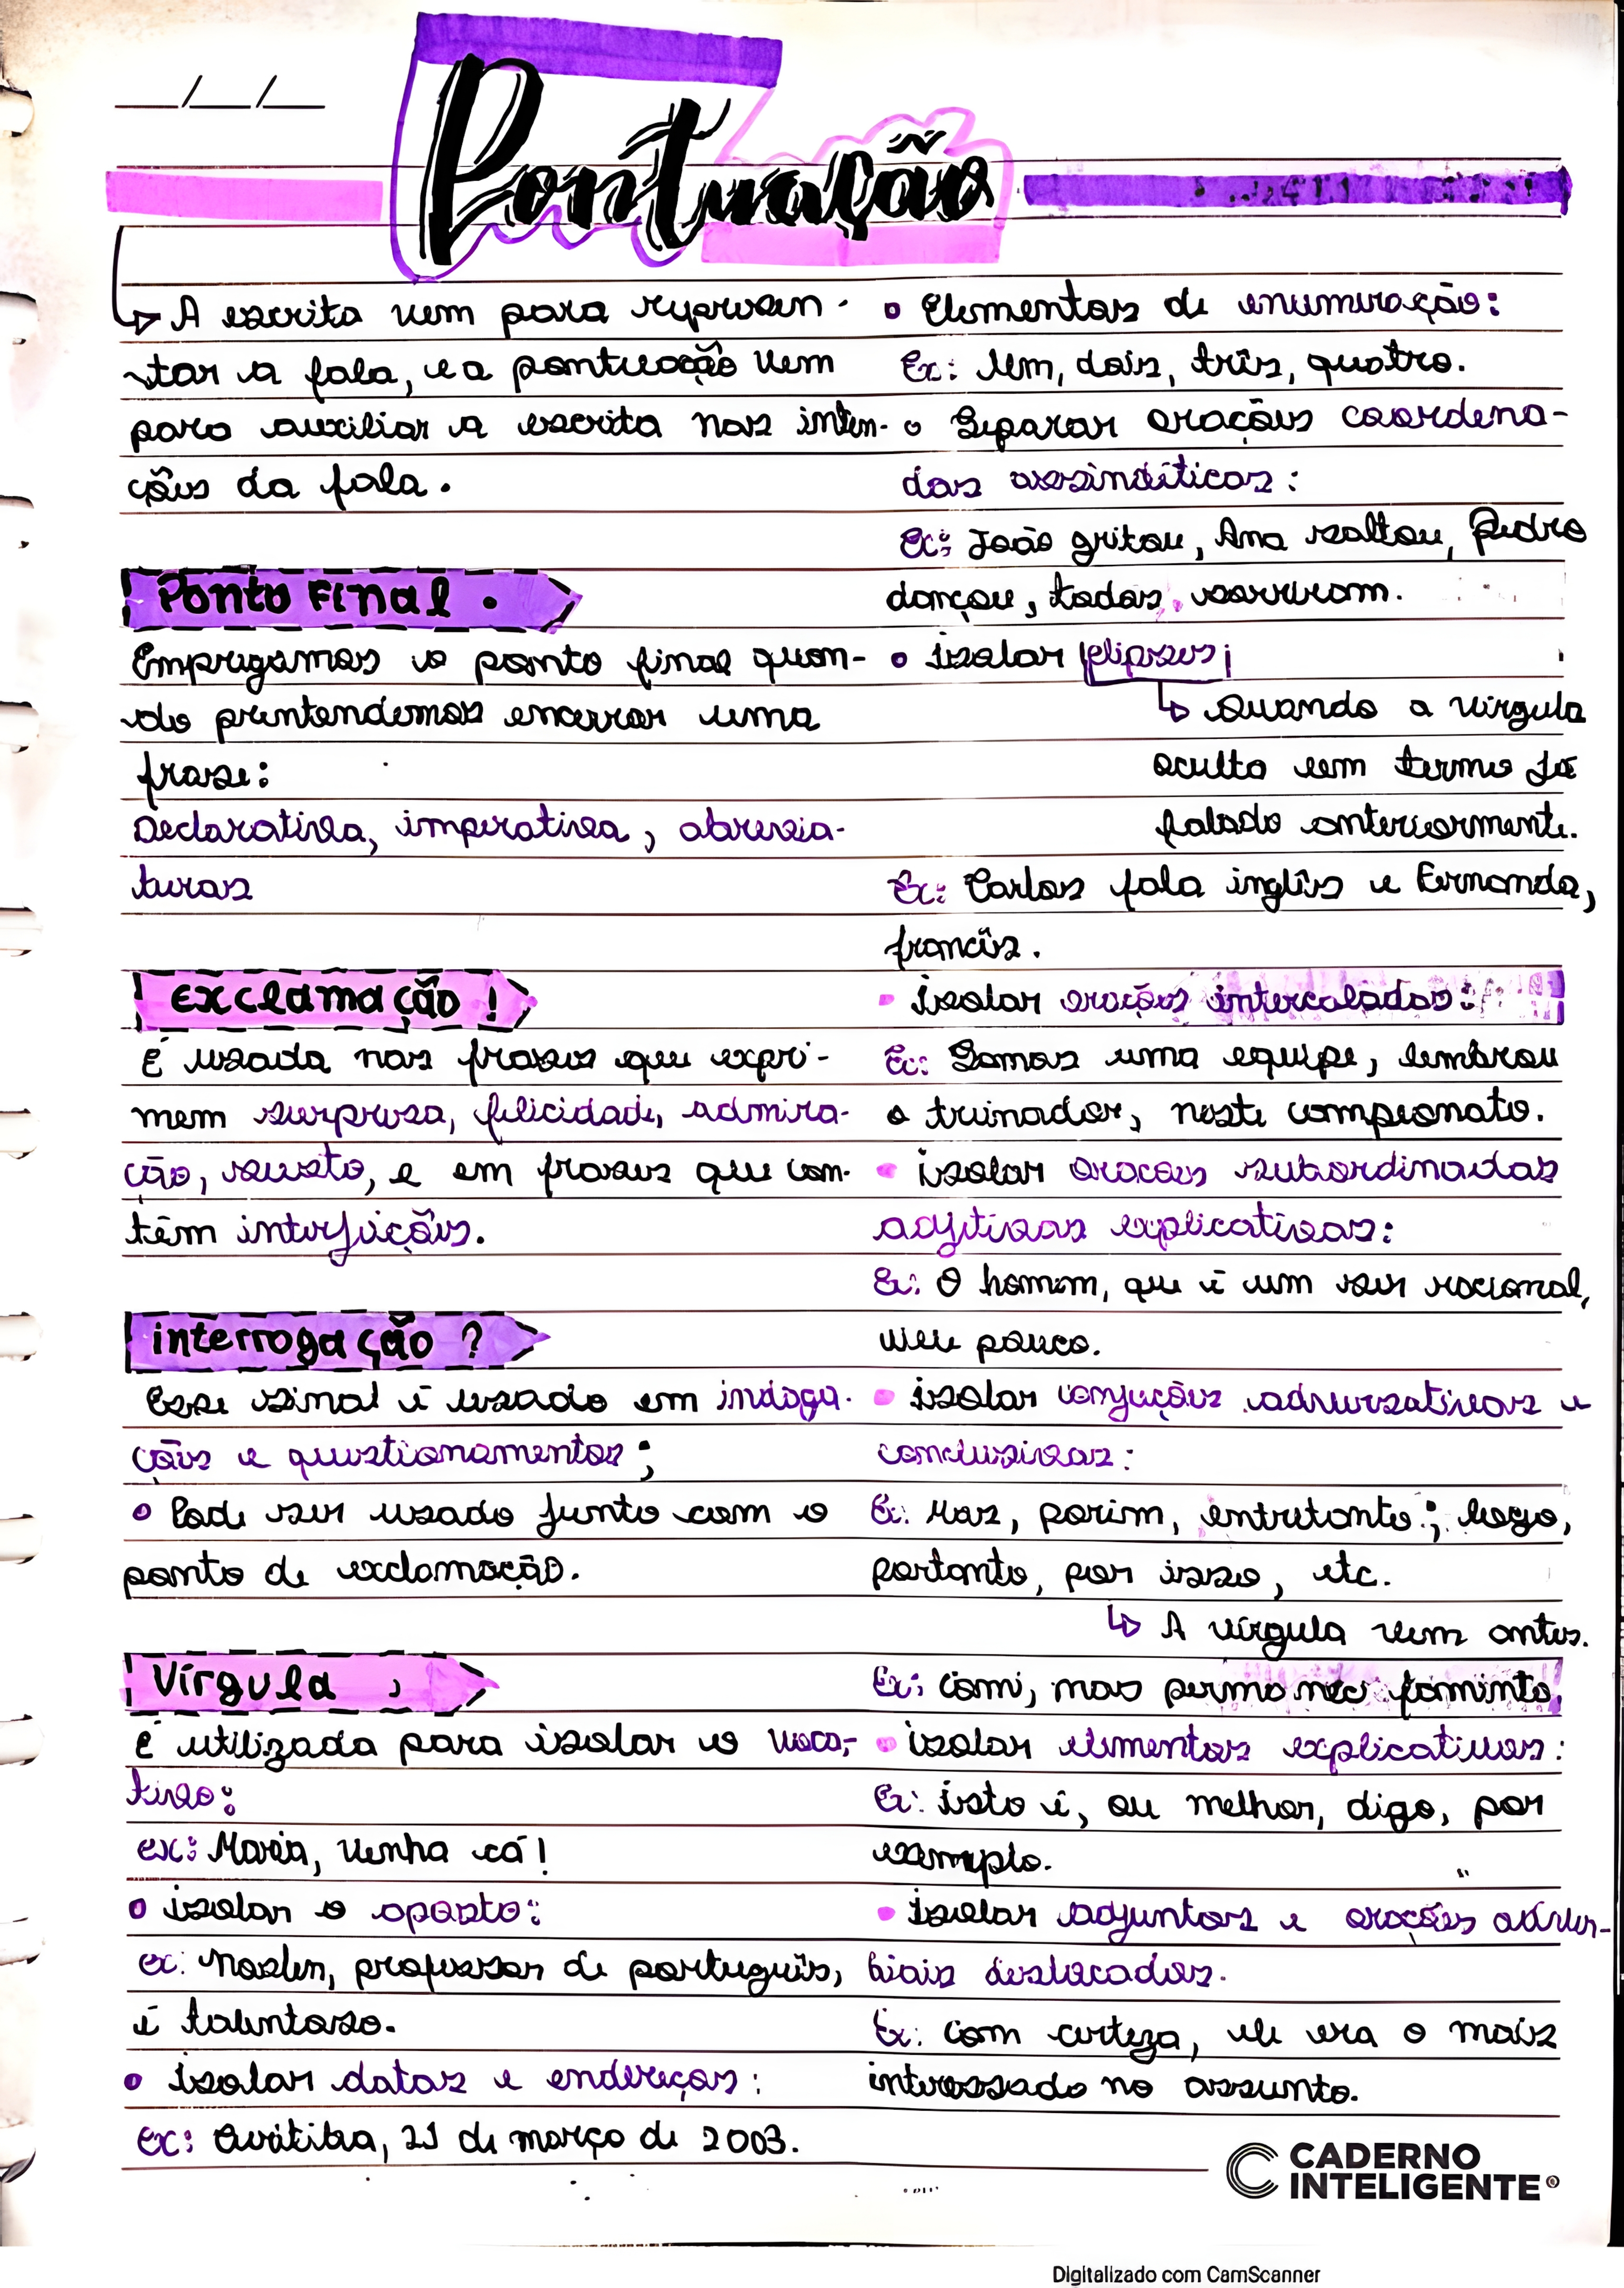 __/__/__
Pontuação
↳ A escrita vem para represen-
tar a fala, e a pontuação vem
para auxiliar a escrita nas inten-
ções da fala.
Ponto Final .
Empregamos o ponto final quan-
do pretendemos encerrar uma
frase:
Declarativa, imperativa, abrevia-
turas
Exclamação !
É usada nas frases que expri-
mem surpresa, felicidade, admira-
ção, susto, e em frases que con-
têm interjeições.
interrogação ?
Esse sinal é usado em indaga-
ções e questionamentos;
• Pode ser usado junto com o
ponto de exclamação.
Vírgula ,
É utilizada para isolar o voca-
tivo:
ex: Maria, venha cá!
• isolar o aposto:
ex: Noslen, professor de português,
é talentoso.
• isolar datas e endereços:
ex: Curitiba, 21 de março de 2003.
• Elementos de enumeração:
Ex: Um, dois, três, quatro.
• Separar orações coordena-
das assindéticas:
Ex: João gritou, Ana saltou, Pedro
dançou, todos sorriram.
• isolar elipses;
↳ Quando a vírgula
oculta um termo já
falado anteriormente.
Ex: Carlos fala inglês e Fernanda,
francês.
• isolar orações intercaladas:
Ex: Somos uma equipe, lembrou
o treinador, neste campeonato.
• isolar oracoes subordinadas
adjetivas explicativas:
Ex: O homem, que é um ser racional,
vive pouco.
• isolar conjuções adversativas e
conclusivas:
Ex: Mas, porém, entretanto; logo,
portanto, por isso, etc.
↳ A vírgula vem antes.
Ex: comi, mas permaneci faminto,
• isolar elementos explicativos:
Ex: isto é, ou melhor, digo, por
exemplo.
• isolar adjuntos e orações adver-
biais deslocadas.
Ex: com certeza, ele era o mais
interessado no assunto.
CADERNO
INTELIGENTE®
Digitalizado com CamScanner